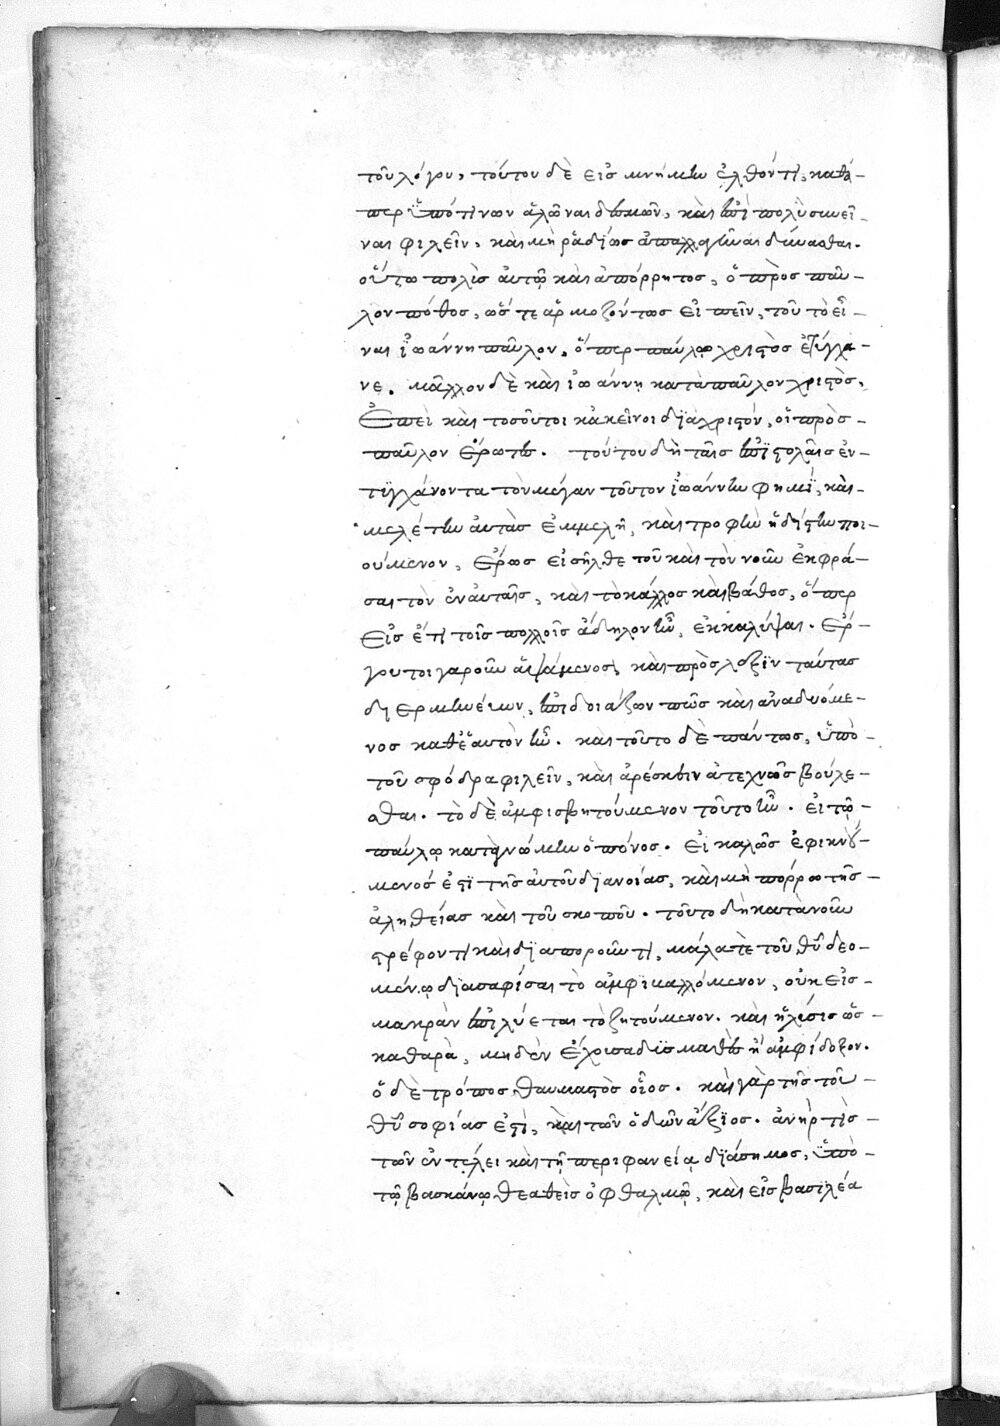 τοῦ λόγου, τούτου δὲ εἰς μνήμην ἐλθόντι, καθά-
περ ὑπό τινων ἁλῶναι δεσμῶν, καὶ ἐπὶ πολὺ συνεῖ-
ναι φιλεῖν, καὶ μὴ ῥαδίως ἀπαλλαγῆναι δύνασθαι.
οὕτω πολὺς αὐτῷ καὶ ἀπόρρητος, ὁ πρὸς παῦ-
λον πόθος, ὥς τε ἁρμοζόντως εἰπεῖν, τοῦτο εἶ-
ναι ἰωάννη παῦλον, ὅπερ παύλῳ χριστὸς ἐτύγχα-
νε. μᾶλλον δὲ καὶ ἰωάννη κατὰ παῦλον χριστὸς,
Ἐπεὶ καὶ τοσοῦτοι κἀκεῖνοι διὰ χριστόν, οἱ πρὸς
παῦλον ἔρωτες. τούτου δὴ ταῖς ἐπιστολαῖς ἐν-
τυγχάνοντα τὸν μέγαν τοῦτον ἰωάννην φημὶ, καὶ
μελέτην αὐτὰς ἐμμελῆ, καὶ τροφὴν ἡδίστην ποι-
ούμενον, ἔρως εἰσῆλθε τοῦ καὶ τὸν νοῦν ἐκφρά-
σαι τὸν ἐν αὐταῖς, καὶ τὸ κάλλος καὶ βάθος, ὅπερ
εἰς ἔτι τοῖς πολλοῖς ἄδηλον ἦν, ἐκκαλύψαι. ἔρ-
γου τοιγαροῦν ἁψάμενος, καὶ πρὸς λέξιν ταύτας
διερμηνεύων, ἐπιδοιάζων πως καὶ ἀναδυόμε-
νος καθ' ἑαυτὸν ἦν. καὶ τοῦτο δὲ πάντως, ὑπὸ
τοῦ σφόδρα φιλεῖν, καὶ ἀρέσκειν ἀτεχνῶς βούλε-
σθαι. τὸ δὲ ἀμφισβητούμενον τοῦτο ἦν. εἰ τῷ
παύλῳ κατὰ γνώμην ὁ πόνος. εἰ καλῶς ἐφικνού-
μενός ἐστι τῆς αὐτοῦ διανοίας, καὶ μὴ πόρρω τῆς
ἀληθείας καὶ τοῦ σκοποῦ. τοῦτο δὴ κατὰ νοῦν
στρέφοντι καὶ διαποροῦντι, μάλα τε τοῦ θῦ δεο-
μένῳ διασαφίσαι τὸ ἀμφιβαλλόμενον, οὐκ εἰς
μακρὰν ἐπιλύεται τὸ ζητούμενον. καὶ ἡ λύσις ὡς
καθαρὰ, μηδὲν ἔχουσα δυσμαθὲς ἢ ἀμφίδοξον.
ὁ δὲ τρόπος θαυμαστὸς οἷος. καὶ γὰρ τῆς τοῦ
θῦ σοφίας ἐστὶ, καὶ τῶν ὁδῶν ἄξιος. ἀνήρ τις
τῶν ἐν τέλει καὶ τῇ περιφανείᾳ διάσημος, ὑπὸ
τῷ βασκάνῳ θεαθεὶς ὀφθαλμῷ, καὶ εἰς βασιλέα